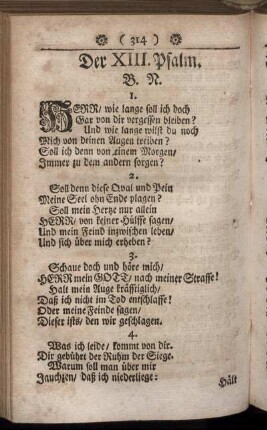 ( 314 )
Der XIII. Psalm.
B. N.
1.
HERR/ wie lange soll ich doch
Gar von dir vergessen bleiben?
Und wie lange wilst du noch
Mich von deinen Augen treiben?
Soll ich denn von einem Morgen/
Immer zu dem andern sorgen?
2.
Soll denn diese Qual und Pein
Meine Seel ohn Ende plagen?
Soll mein Hertze nur allein
HERR/ von keiner Hülffe sagen/
Und mein Feind inzwischen leben/
Und sich über mich erheben?
3.
Schaue doch und höre mich/
HERR mein GOTT/ nach meiner Strasse!
Halt mein Auge kräfftiglich/
Daß ich nicht im Tod entschlasse!
Oder meine Feinde sagen/
Dieser ists/ den wir geschlagen.
4.
Was ich leide/ kommt von dir.
Dir gebührt der Ruhm der Siege.
Warum soll man über mir
Jauchzen/ daß ich niederliege:
Hält